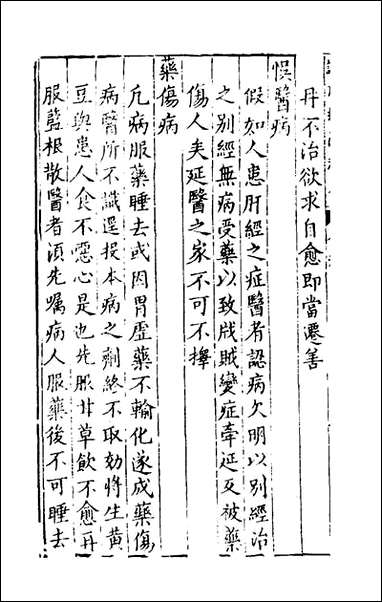 丹不治欲求自愈即當遷善
悞醫病
假如人患肝經之症醫者認病欠明以别經治
之别經無病受藥以致戕賊變症牽延反被藥
傷人矣延醫之家不可不擇
藥傷病
凢病服藥睡去或因胃虛藥不輸化遂成藥傷
病醫所不識還投本病之劑終不取効將生黄
豆與患人食不噁心是也先服甘草飲不愈再
服藍根散醫者須先囑病人服藥後不可睡去